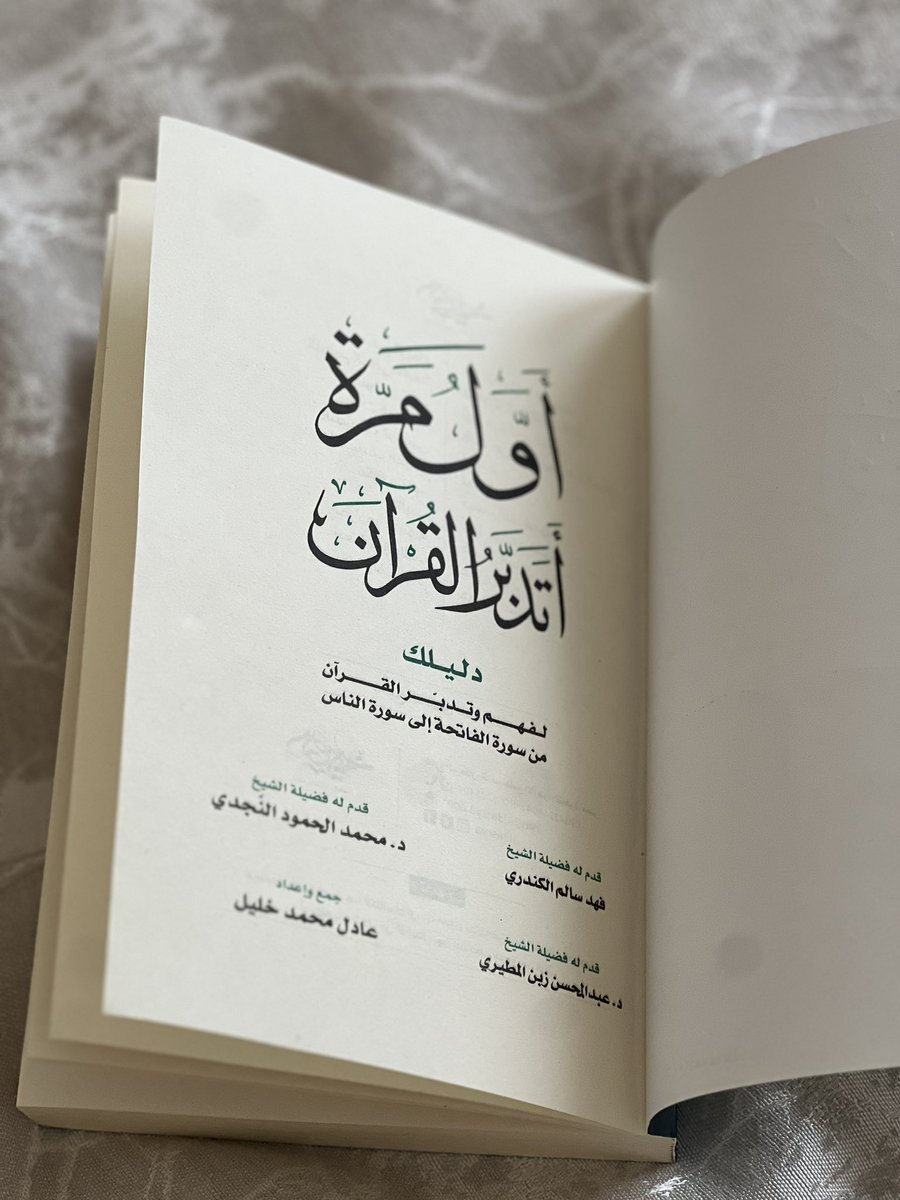 أَوَّلُ مَرَّةٍ
أَتَدَبَّرُ القُرْآنَ
دليلك
لفهم وتدبّر القرآن
من سورة الفاتحة إلى سورة الناس
قدم له فضيلة الشيخ
فهد سالم الكندري
قدم له فضيلة الشيخ
د. محمد الحمود النّجدي
قدم له فضيلة الشيخ
د. عبدالمحسن زبن المطيري
جمع وإعداد
عادل محمد خليل